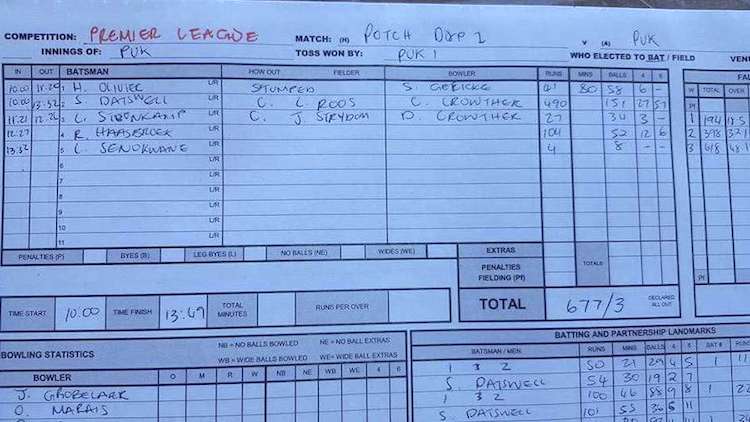 COMPETITION: PREMIER LEAGUE MATCH: (H) POTCH DORP 1 V (A) PUK
INNINGS OF: PUK TOSS WON BY: PUK 1 WHO ELECTED TO BAT / FIELD VENU
IN OUT BATSMAN HOW OUT FIELDER BOWLER RUNS MINS BALLS 4 6 FAL
W TOTAL OVER
10.00 11.20 1 H. OLIVIER L/R STUMPED S. GERICKE 80 58 6 -
10.00 13.52 2 S. DATSWELL L/R C. L. ROOS C. CROWTHER 490 151 27 57 Pf
11.21 12.26 3 C. L/R C. J STRYDOM D. CROWTHER 27 34 3 - 1 194
12.27 4 R. HAASBROEK L/R 104 52 12 6 2 398 32.1
13.52 5 L. SENOKWANE L/R 4 8 - - 3 48.1
6 L/R
7 L/R
8 L/R
9 L/R
10 L/R
11 L/R
PENALTIES (P) BYES (B) LEG BYES (L) NO BALLS (NE) WIDES (WE) EXTRAS
PENALTIES FIELDING (Pf) TOTALS Pf
TIME START 10.00 TIME FINISH 13:49 TOTAL MINUTES RUNS PER OVER TOTAL 677/3 DECLARED ALL OUT
BOWLING STATISTICS NB = NO BALLS BOWLED NE = NO BALL EXTRAS
WB = WIDE BALLS BOWLED WE = WIDE BALL EXTRAS
BOWLER O M R W NB NE WB WE 4 6
J. GROBELAAR
O. MARAIS
BATTING AND PARTNERSHIP LANDMARKS
BATSMAN / MEN RUNS MINS BALLS 4 6 BAT # RUNS
1 & 2 50 21 29 4 5 1
S. DATSWELL 54 30 19 2 7
1 & 2 100 46 58 9 8 1
S. DATSWELL 101 53 36 5 11